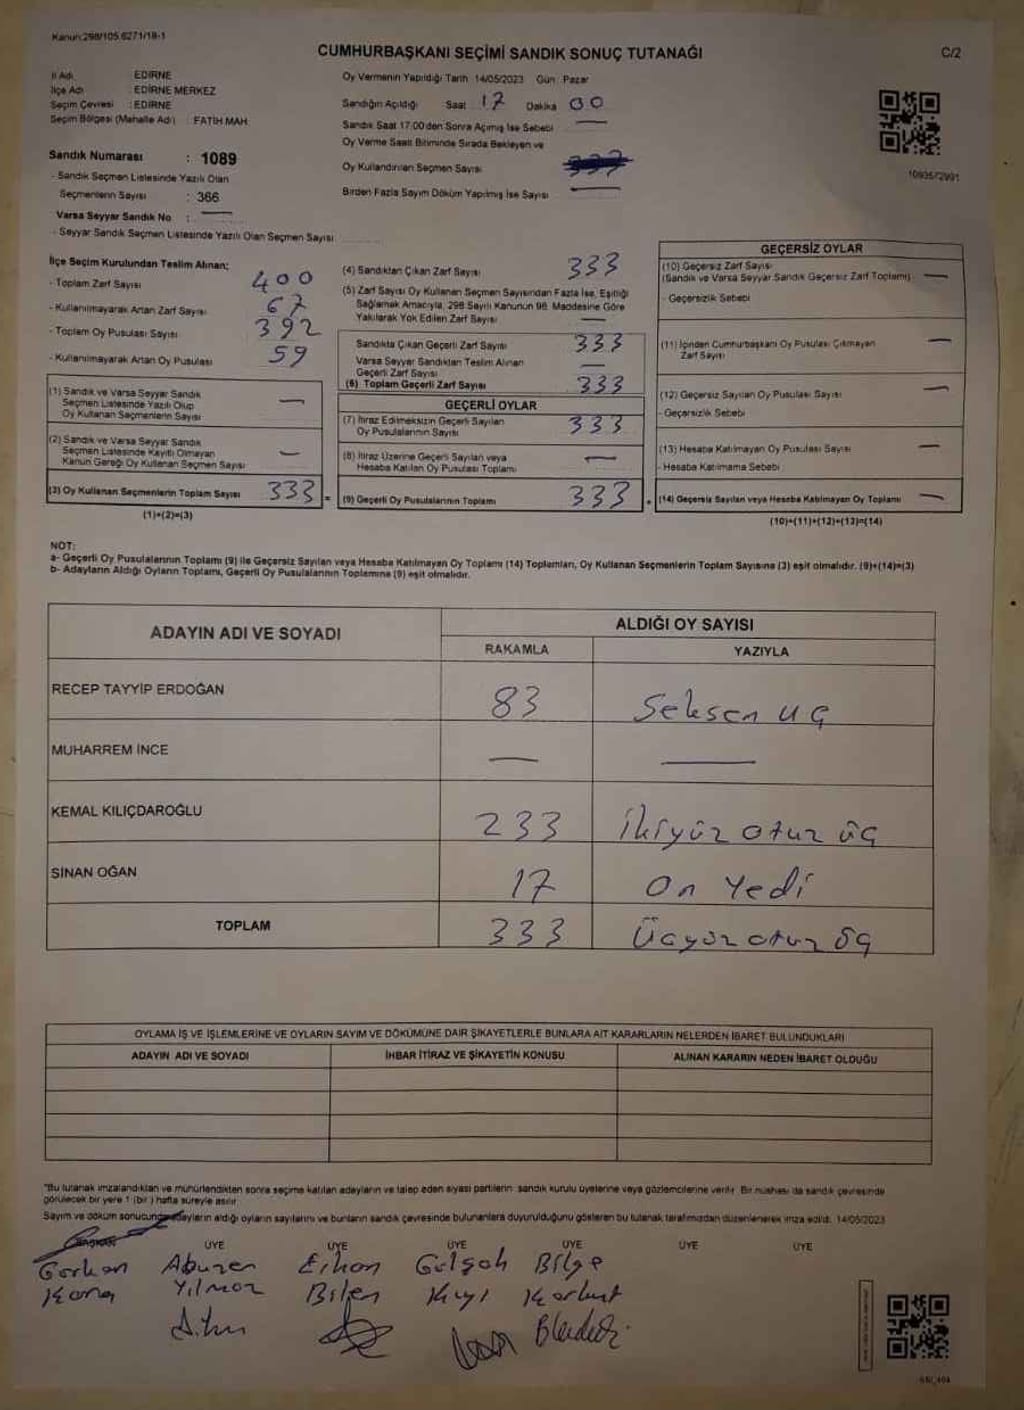 Kanun:298/105,6271/18-1
CUMHURBAŞKANI SEÇİMİ SANDIK SONUÇ TUTANAĞI
C/2
İl Adı EDİRNE
İlçe Adı EDİRNE MERKEZ
Seçim Çevresi : EDİRNE
Seçim Bölgesi (Mahalle Adı) : FATİH MAH.
Sandık Numarası : 1089
- Sandık Seçmen Listesinde Yazılı Olan
Seçmenlerin Sayısı : 366
Varsa Seyyar Sandık No : —
- Seyyar Sandık Seçmen Listesinde Yazılı Olan Seçmen Sayısı:
Oy Vermenin Yapıldığı Tarih 14/05/2023 Gün : Pazar
Sandığın Açıldığı Saat : 17 Dakika 00
Sandık Saat 17:00'den Sonra Açılmış İse Sebebi —
Oy Verme Saati Bitiminde Sırada Bekleyen ve
Oy Kullandırılan Seçmen Sayısı
Birden Fazla Sayım Döküm Yapılmış İse Sayısı —
1093572991
İlçe Seçim Kurulundan Teslim Alınan;
- Toplam Zarf Sayısı 400
- Kullanılmayarak Artan Zarf Sayısı 67
- Toplam Oy Pusulası Sayısı 392
- Kullanılmayarak Artan Oy Pusulası 59
(1) Sandık ve Varsa Seyyar Sandık
Seçmen Listesinde Yazılı Olup
Oy Kullanan Seçmenlerin Sayısı —
(2) Sandık ve Varsa Seyyar Sandık
Seçmen Listesinde Kayıtlı Olmayan
Kanun Gereği Oy Kullanan Seçmen Sayısı —
(3) Oy Kullanan Seçmenlerin Toplam Sayısı 333 =
(1)+(2)=(3)
(4) Sandıktan Çıkan Zarf Sayısı 333
(5) Zarf Sayısı Oy Kullanan Seçmen Sayısından Fazla İse, Eşitliği
Sağlamak Amacıyla, 298 Sayılı Kanunun 98. Maddesine Göre
Yakılarak Yok Edilen Zarf Sayısı —
Sandıkta Çıkan Geçerli Zarf Sayısı 333
Varsa Seyyar Sandıktan Teslim Alınan
Geçerli Zarf Sayısı —
(6) Toplam Geçerli Zarf Sayısı 333
GEÇERLİ OYLAR
(7) İtiraz Edilmeksizin Geçerli Sayılan
Oy Pusulalarının Sayısı 333
(8) İtiraz Üzerine Geçerli Sayılan veya
Hesaba Katılan Oy Pusulası Toplamı —
(9) Geçerli Oy Pusulalarının Toplamı 333 +
GEÇERSİZ OYLAR
(10) Geçersiz Zarf Sayısı
(Sandık ve Varsa Seyyar Sandık Geçersiz Zarf Toplamı) —
- Geçersizlik Sebebi
(11) İçinden Cumhurbaşkanı Oy Pusulası Çıkmayan
Zarf Sayısı —
(12) Geçersiz Sayılan Oy Pusulası Sayısı —
- Geçersizlik Sebebi
(13) Hesaba Katılmayan Oy Pusulası Sayısı —
- Hesaba Katılmama Sebebi
(14) Geçersiz Sayılan veya Hesaba Katılmayan Oy Toplamı —
(10)+(11)+(12)+(13)=(14)
NOT:
a- Geçerli Oy Pusulalarının Toplamı (9) ile Geçersiz Sayılan veya Hesaba Katılmayan Oy Toplamı (14) Toplamları, Oy Kullanan Seçmenlerin Toplam Sayısına (3) eşit olmalıdır. (9)+(14)=(3)
b- Adayların Aldığı Oyların Toplamı, Geçerli Oy Pusulalarının Toplamına (9) eşit olmalıdır.
ADAYIN ADI VE SOYADI ALDIĞI OY SAYISI
RAKAMLA YAZIYLA
RECEP TAYYİP ERDOĞAN 83 Seksen üç
MUHARREM İNCE — —
KEMAL KILIÇDAROĞLU 233 İkiyüz otuz üç
SİNAN OĞAN 17 On Yedi
TOPLAM 333 Üçyüz otuz üç
OYLAMA İŞ VE İŞLEMLERİNE VE OYLARIN SAYIM VE DÖKÜMÜNE DAİR ŞİKAYETLERLE BUNLARA AİT KARARLARIN NELERDEN İBARET BULUNDUKLARI
ADAYIN ADI VE SOYADI İHBAR İTİRAZ VE ŞİKAYETİN KONUSU ALINAN KARARIN NEDEN İBARET OLDUĞU
"Bu tutanak imzalandıktan ve mühürlendikten sonra seçime katılan adayların ve talep eden siyasi partilerin sandık kurulu üyelerine veya gözlemcilerine verilir. Bir nüshası da sandık çevresinde
görülecek bir yere 1 (bir) hafta süreyle asılır.
Sayım ve döküm sonucunda adayların aldığı oyların sayılarını ve bunların sandık çevresinde bulunanlara duyurulduğunu gösteren bu tutanak tarafımızdan düzenlenerek imza edildi. 14/05/2023
ÜYE ÜYE ÜYE ÜYE ÜYE ÜYE
Gorkan Abuzer Erhan Gülşah Bilge
Kara Yılmaz Bilen Kıyı Korkut